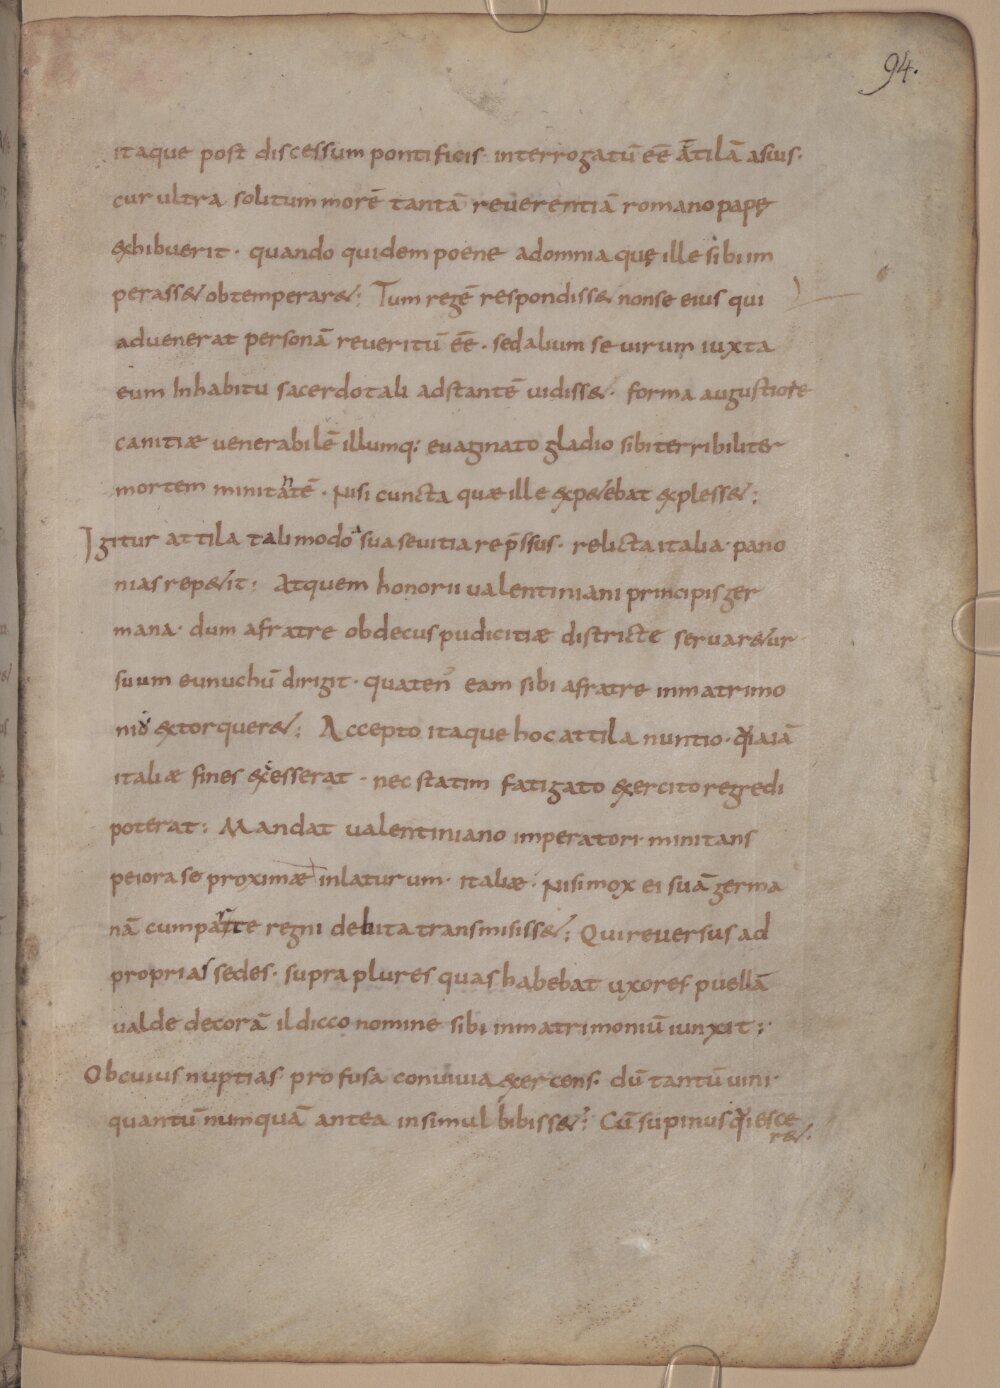 94.
itaque post discessum pontificis· interrogatū eē attilā asuis·
cur ultra solitum morē tantā reuerentiā romano papę
exhibuerit· quando quidem poene adomnia quę ille sibi im
perass& obtemperar&; Tum regē respondiss& nonse eius qui
aduenerat personā reueritū eē· sed alium se uirum iuxta
eum Inhabitu sacerdotali adstantē uidiss&· forma augustiore
canitiæ uenerabilē illumq; euaginato gladio sibi terribiliter
mortem minitantē· Nisi cuncta quæ ille exp&ebat expless&;
Igitur attila tali modo a sua seuitia rep̄ssus· relicta italia· pano
nias rep&it; Atquem honorii ualentiniani principis ger
mana· dum afratre ob decus pudicitiæ districte seruar&ur
suum eunuchū dirigit· quaten᾽ eam sibi afratre inmatrimo
niū extorquer&; Accepto itaque hoc attila nuntio· q̄a iā
italiæ fines excesserat· nec statim fatigato exercito regredi
poterat; Mandat ualentiniano imperatori· minitans
peiora se proximæ inlaturum· italiæ· Nisi mox ei suā germa
nā cumparte regni debita transmisiss&; Qui reuersus ad
proprias sedes· supra plures quas habebat uxores puellā
ualde decorā ildicco nomine sibi inmatrimoniū iunxit;
Ob cuius nuptias profusa conuiuia exercens· dū tantū uini·
quantū numquā antea insimul bibiss&; Cū supinus q̄iesce
r&;